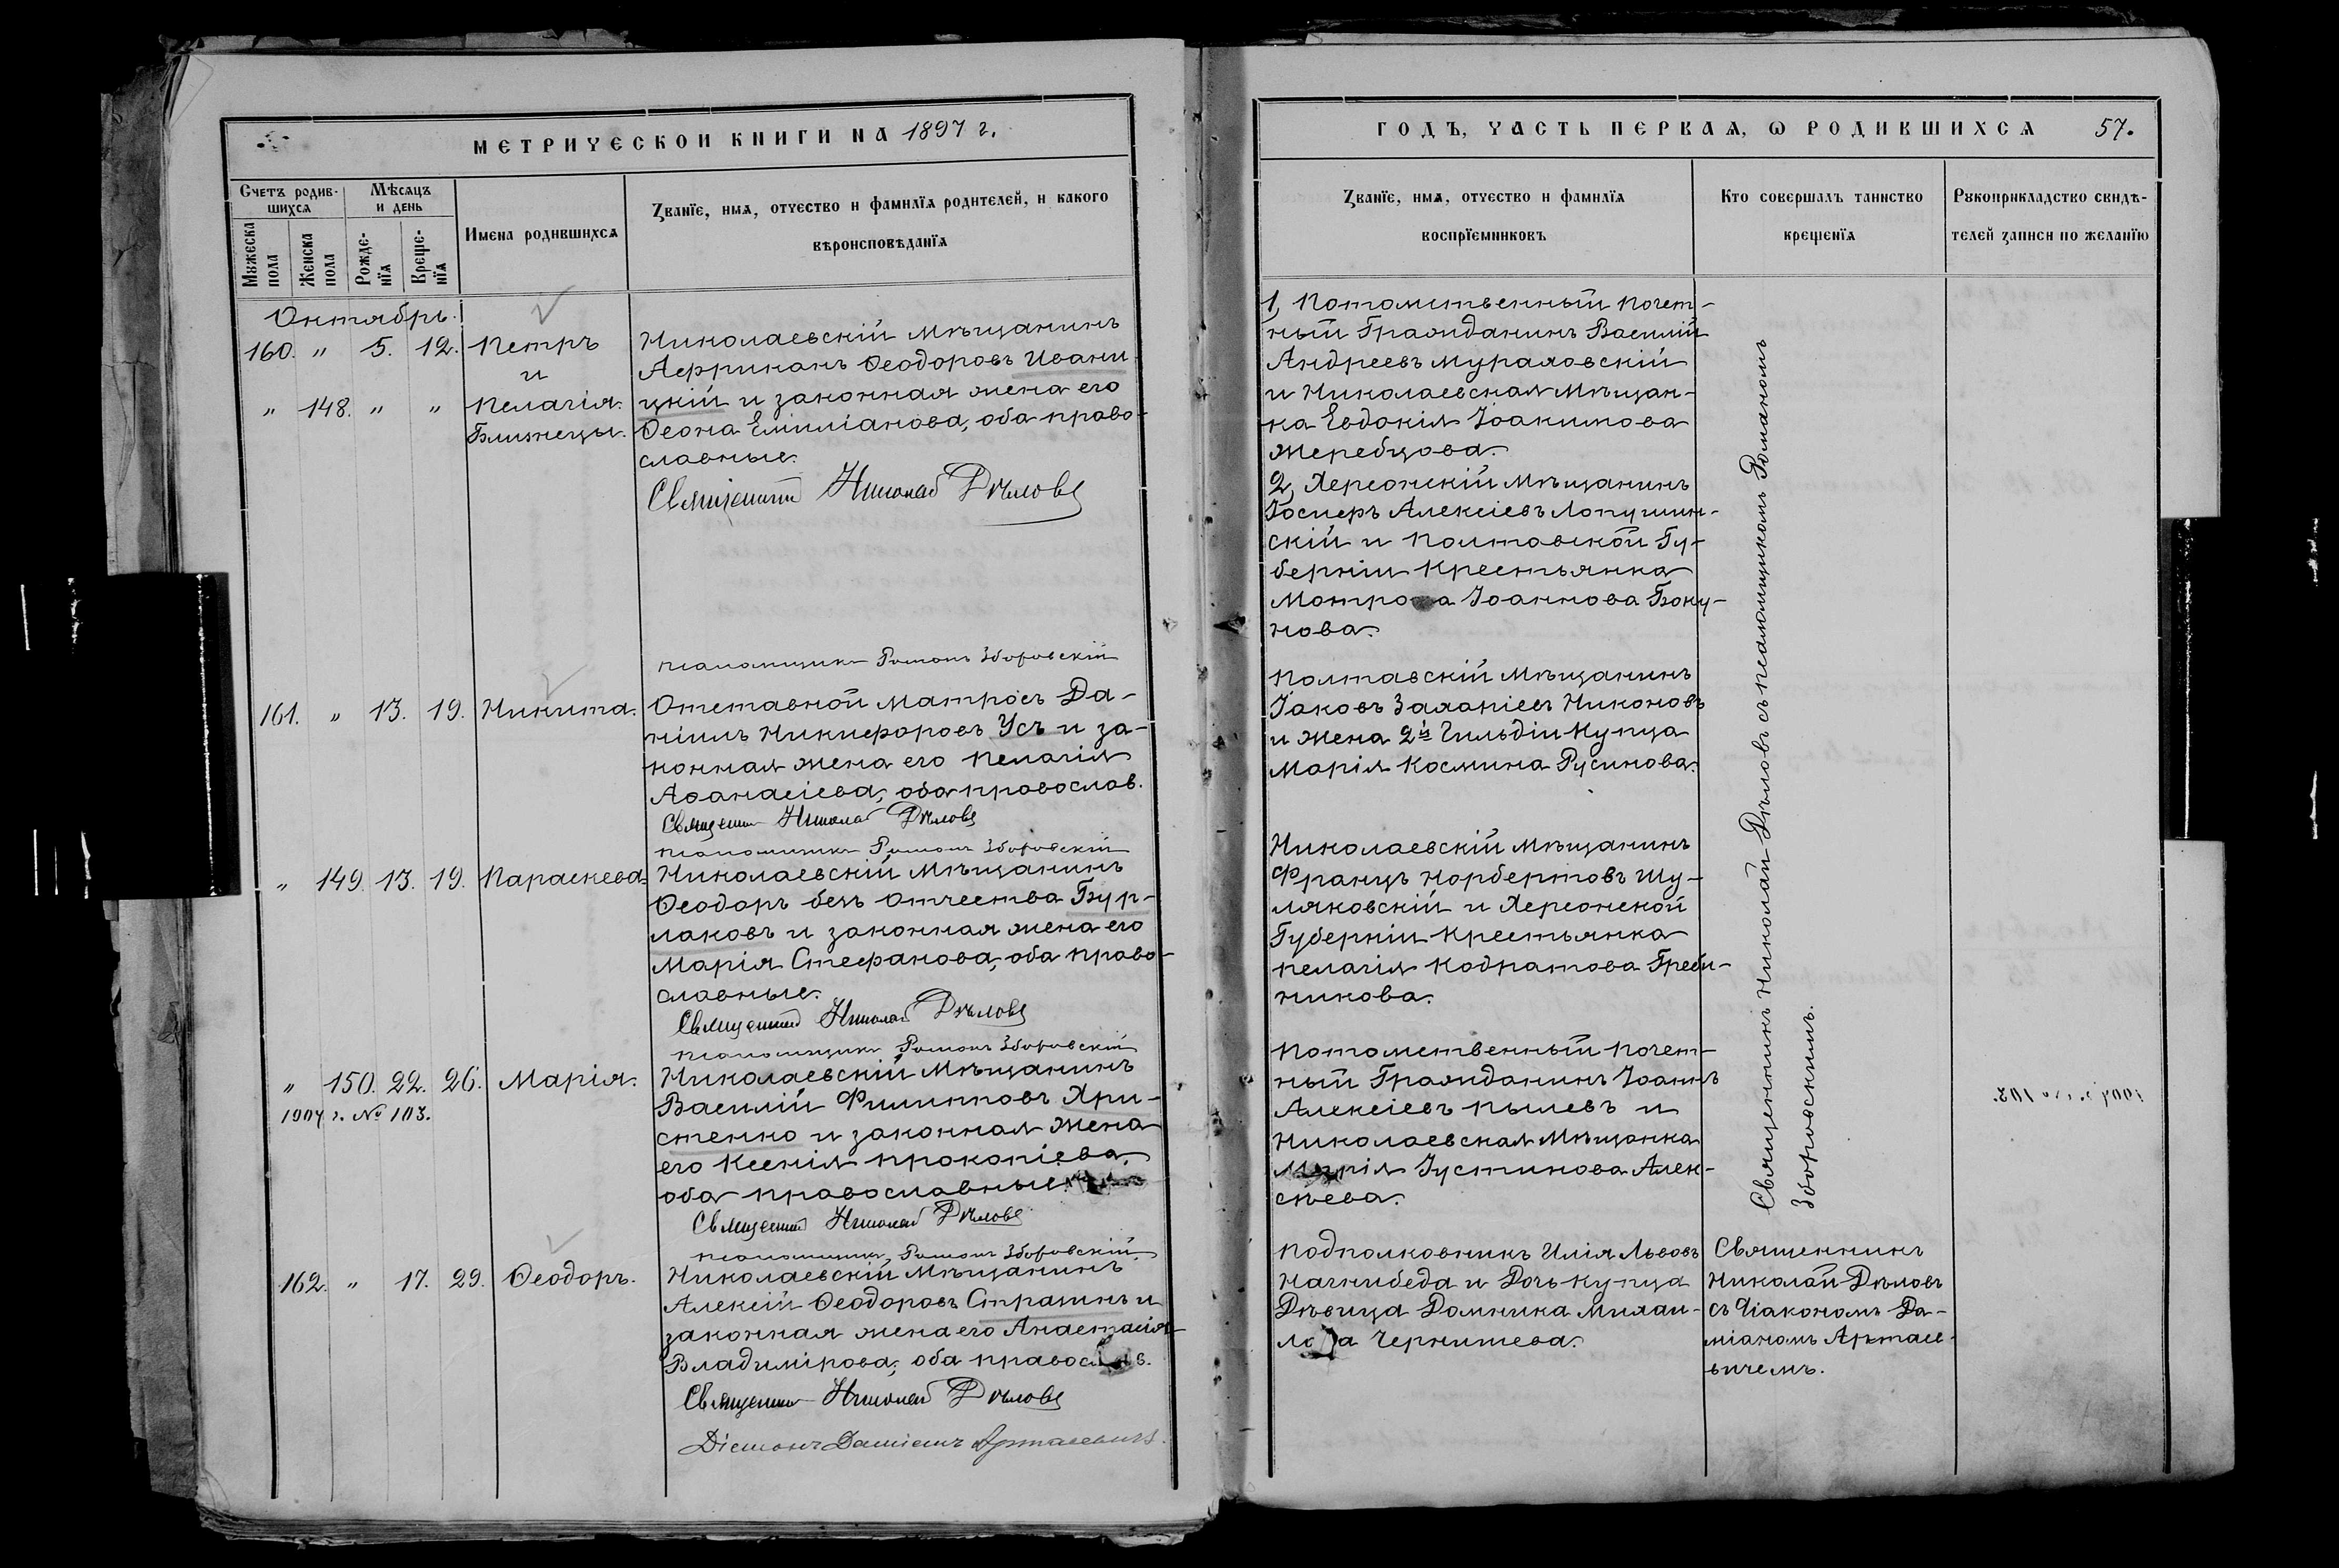 МЕТРИЧЕСКОЙ КНИГИ НА 1897 г.
Счетъ родив-
шихся
Мѣсяцъ
и день
Мужеска
пола
Женска
пола
Рожде-
нїя
Креще-
нїя
Имена родившихся
Званїе, имя, отчество и фамилїя родителей, и какого
вѣроисповѣданїя
Октябрь.
160. " 5. 12. Петръ
и
" 148. " " Пелагія.
Близнецы.
Николаевскій Мѣщанинъ
Африканъ Ѳеодоровъ Ивани
цкій и законная жена его
Ѳеона Емиліанова, оба право-
славные.
Священникъ Николай Дѣловъ
псаломщикъ Романъ Зборовскій
161. " 13. 19. Никита.
Отставной Матросъ Да-
ніилъ Никифоровъ Усъ и за-
конная жена его Пелагія
Аѳанасіева, оба православ.
Священникъ Николай Дѣловъ
псаломщикъ Романъ Зборовскій
" 149. 13. 19. Параскева.
Николаевскій Мѣщанинъ
Ѳеодоръ безъ отчества Бур-
лаковъ и законная жена его
Марія Стефанова, оба право-
славные.
Священникъ Николай Дѣловъ
псаломщикъ Романъ Зборовскій
" 150. 22. 26. Марія.
1907 г. № 103.
Николаевскій Мѣщанинъ
Василій Филипповъ Хри-
стенко и законная жена
его Ксенія Прокопіева,
оба православные.
Священникъ Николай Дѣловъ
псаломщикъ Романъ Зборовскій
162. " 17. 29. Ѳеодоръ.
Николаевскій Мѣщанинъ
Алексій Ѳеодоровъ Страшинъ и
законная жена его Анастасія
Владимірова, оба православ.
Священникъ Николай Дѣловъ
Діаконъ Даміанъ Артасевичъ.
ГОДЪ, ЧАСТЬ ПЕРВАЯ, Ѡ РОДИВШИХСЯ 57.
Званїе, имя, отчество и фамилїя
воспрїемниковъ
Кто совершалъ таинство
крещенїя
Рукоприкладство свидѣ-
телей записи по желанїю
1, Потомственный почет-
ный Гражданинъ Василій
Андреевъ Мураховскій
и Николаевская Мѣщан-
ка Евдокія Іоакимова
Жеребцова.
2, Херсонскій Мѣщанинъ
Іосифъ Алексіевъ Лопушин-
скій и Полтавской Гу-
берніи крестьянка
Матрона Іоаннова Боку-
нова.
Полтавскій Мѣщанинъ
Іаковъ Захаріевъ Никоновъ
и жена 2й Гильдіи Купца
Марія Космина Русинова.
Николаевскій Мѣщанинъ
Францъ Норбертовъ Шу-
ляковскій и Херсонской
Губерніи крестьянка
Пелагія Кодратова Греби-
никова.
Потомственный почет-
ный Гражданинъ Іоаннъ
Алексіевъ Пылевъ и
Николаевская Мѣщанка
Марія Іустинова Алек-
сѣева.
Подполковникъ Илія Львовъ
Нагнибеда и Дочь купца
Дѣвица Домника Михаи-
лова Чернишева.
Священникъ Николай Дѣловъ съ псаломщикомъ Романомъ
Зборовскимъ.
Священникъ
Николай Дѣловъ
съ Діакономъ Да-
міаномъ Артасе-
вичемъ.